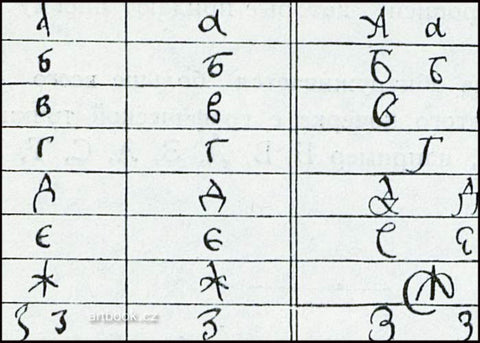 А а А а
Б Б Б Б
В В В
Г Г Г
Д Д Д Д
Є Є Є Є
Ж Ж Ж
З З З З З
artbook.cz